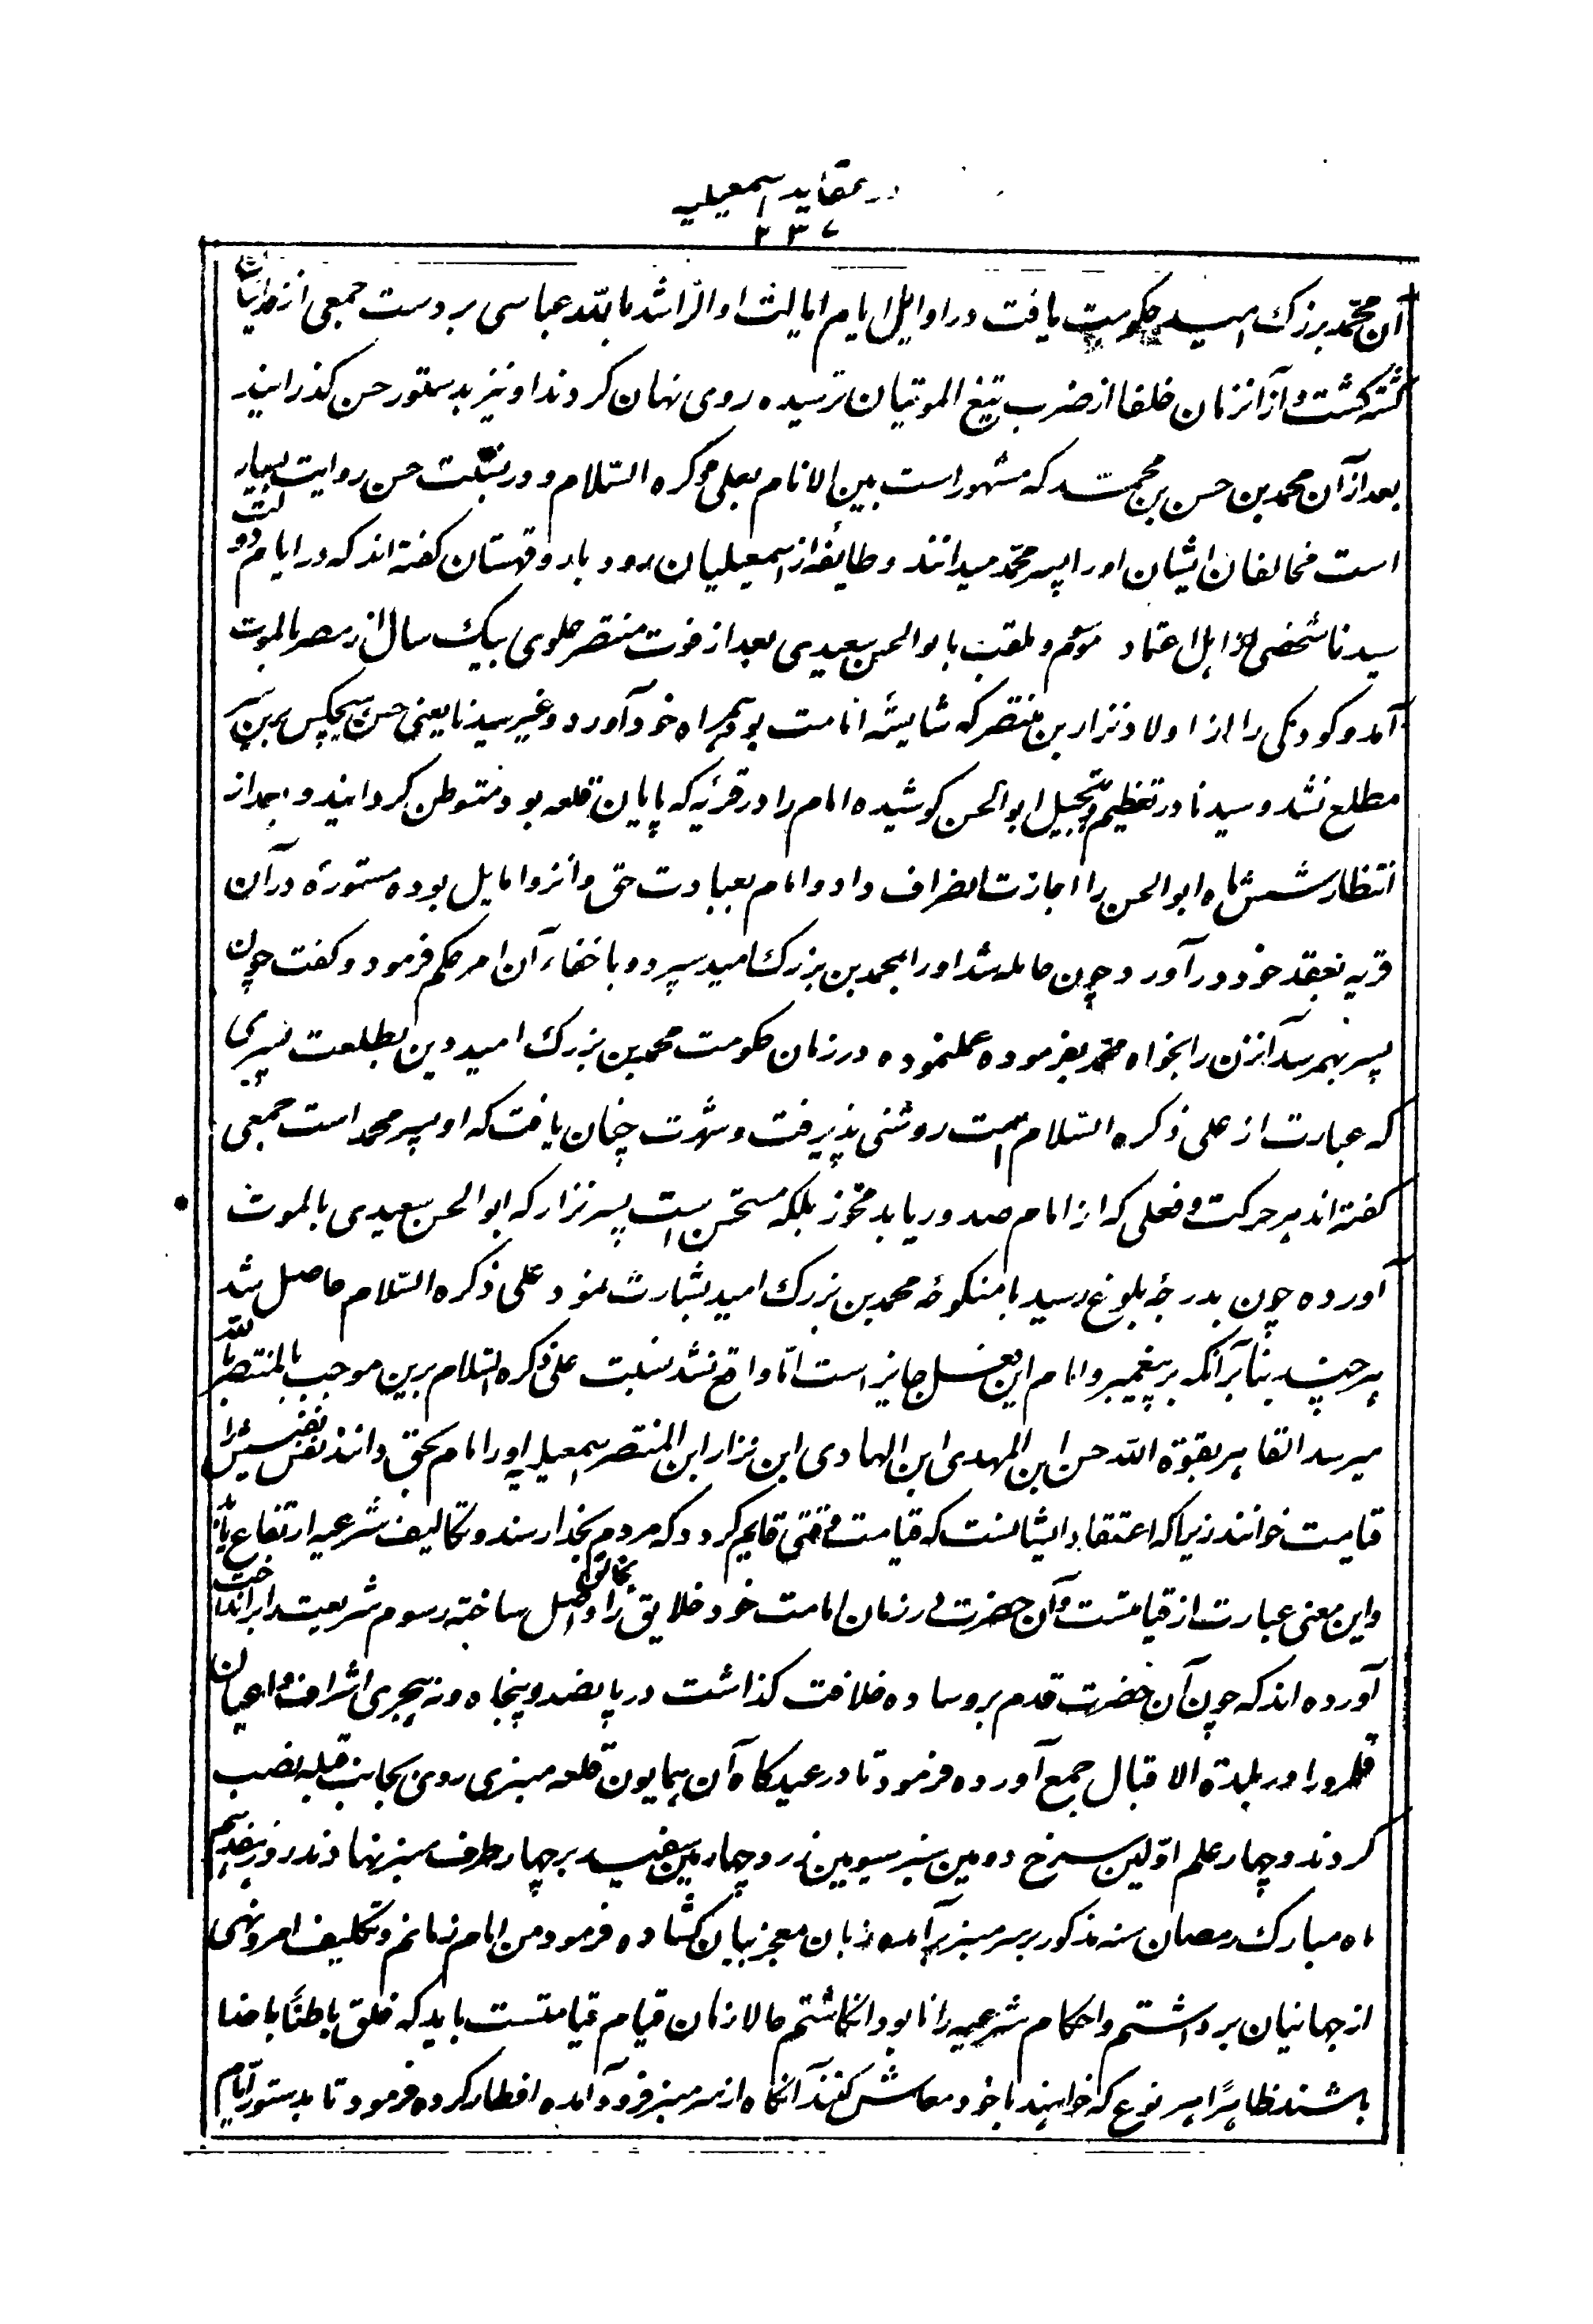 در عقاید اسمعیلیه
۲۳۷
آن محمد بزرك امید حکومت یافت در اوایل ایام ایالت او الراشد بالله عباسی بر دست جمعی از فدائیان
کشته کشت و از آنزمان خلفا از ضرب تیغ الموتیان ترسیده روی نهان کردند او نیز بدستور حسن کذرانید
بعد از آن محمد بن حسن بن محمد که مشهور است بین الانام بعلی ذکره السلام و در نسبت حسن روایت بسیار
است مخالفان ایشان او را پسر محمد میدانند و طایفه از اسمعیلیان رودبار و قهستان کفته اند که در ایام دولت
سیدنا شخصی از اهل اعتماد موسوم و ملقب بابوالحسن سعیدی بعد از فوت منتصر علوی بیك سال از مصر بالموت
آمد و کودکی را از اولاد نزار بن منتصر که شایسته امامت بود همراه خود آورد و غیر سیدنا یعنی حسن هیچکس برین سر
مطلع نشد و سیدنا در تعظیم و تبجیل ابوالحسن کوشیده امام را در قریه که پایان قلعه بود متوطن کردانید و بعد از
انتظار شش ماه ابوالحسن را اجازت انصراف داد و امام بعبادت حق و انزوا مایل بوده مستوره در آن
قریه بعقد خود در آورد و چون حامله شد او را بمحمد بن بزرك امید سپرد و باخفاء آن امر حکم فرمود و کفت چون
پسر بهم رسد آنزن را بخواه محمد بفرموده عمل نموده در زمان حکومت محمد بن بزرك امید دین بطلعت نیری
که عبارت از علی ذکره السلام است روشنی پذیرفت و شهرت چنان یافت که او پسر محمد است جمعی
کفته اند هر حرکت و فعلی که از امام صدور یابد مجوز بلکه مستحسن است پسر نزار که ابوالحسن سعیدی بالموت
آورده چون بدرجه بلوغ رسید با منکوحه محمد بن بزرك امید بشارت نمود علی ذکره السلام حاصل شد
هر چند بنا بر آنکه بر پیغمبر و امام این فعل جایز است اما واقع نشد نسبت علی ذکره السلام برین موجب بالمنتصر بالله
میرسد القاهر بقوة الله حسن ابن المهدی ابن الهادی ابن نزار ابن المنتصر اسمعیلیه او را امام بحق دانند نفس نفیسش را
قیامت خوانند زیرا که اعتقاد ایشانست که قیامت وقتی قایم کردد که مردم بخدا رسند و تکالیف شرعیه ارتفاع یابد
و این معنی عبارت از قیامتست و آن حضرت در زمان امامت خود خلایق را بخالق واصل ساخته رسوم شریعت را بر انداخت
آورده اند که چون آن حضرت قدم بر وساده خلافت کذاشت در پانصد و پنجاه و نه هجری اشراف و اعیان
قلمرو را در بلدة الاقبال جمع آورده فرمود تا در عیدکاه آن همایون قلعه منبری روی بجانب قبله نصب
کردند و چهار علم اولین سرخ دومین سبز سیومین زرد چهارمین سفید بر چهار طرف منبر نهادند روز هفدهم
ماه مبارك رمضان سنه مذکور بر سر منبر برآمده زبان معجز بیان کشاده فرمود من امام زمانم و تکلیف امر و نهی
از جهانیان برداشتم و احکام شرعیه را نابود انکاشتم حالا زمان قیام قیامتست باید که خلق باطنًا با خدا
باشند ظاهرًا هر نوع که خواهند با خود معاش کنند آنکاه از سر منبر فرود آمده افطار کرده فرمود تا بدستور ایام